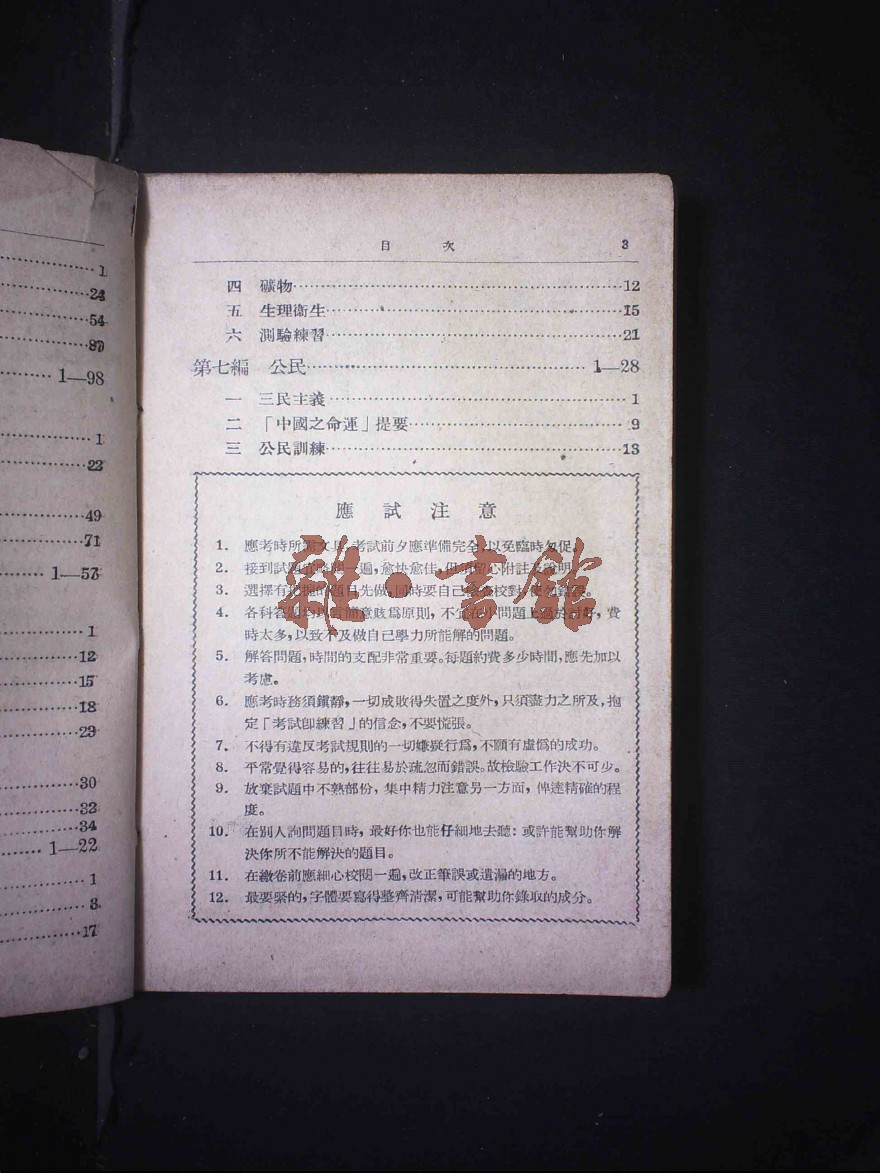 1
24
54
87
1—98
1
22
49
71
1—53
1
12
15
18
29
30
32
34
1—22
1
8
17
目 次 3
四 礦物 12
五 生理衞生 15
六 測驗練習 21
第七編 公民 1—28
一 三民主義 1
二 「中國之命運」提要 9
三 公民訓練 13
應試注意
1. 應考時所需文具,考試前夕應準備完全,以免臨時匆促。
2. 接到試題宜略閱一遍,愈快愈佳,但須留心附註及說明。
3. 選擇有把握的題目先做,同時要自己
4. 各科答題均以言簡意賅爲原則,不宜在小問題上過於討好,費
時太多,以致不及做自己學力所能解的問題。
5. 解答問題,時間的支配非常重要。每題約費多少時間,應先加以
考慮。
6. 應考時務須鎭靜,一切成敗得失置之度外,只須盡力之所及,抱
定「考試卽練習」的信念,不要慌張。
7. 不得有違反考試規則的一切嫌疑行爲,不願有虛僞的成功。
8. 平常覺得容易的,往往易於疏忽而錯誤。故檢驗工作決不可少。
9. 放棄試題中不熟部份,集中精力注意另一方面,俾達精確的程
度。
10. 在別人詢問題目時,最好你也能仔細地去聽:或許能幫助你解
決你所不能解決的題目。
11. 在繳卷前應細心校閱一遍,改正筆誤或遺漏的地方。
12. 最要緊的,字體要寫得整齊清潔,可能幫助你錄取的成分。
雜·書館